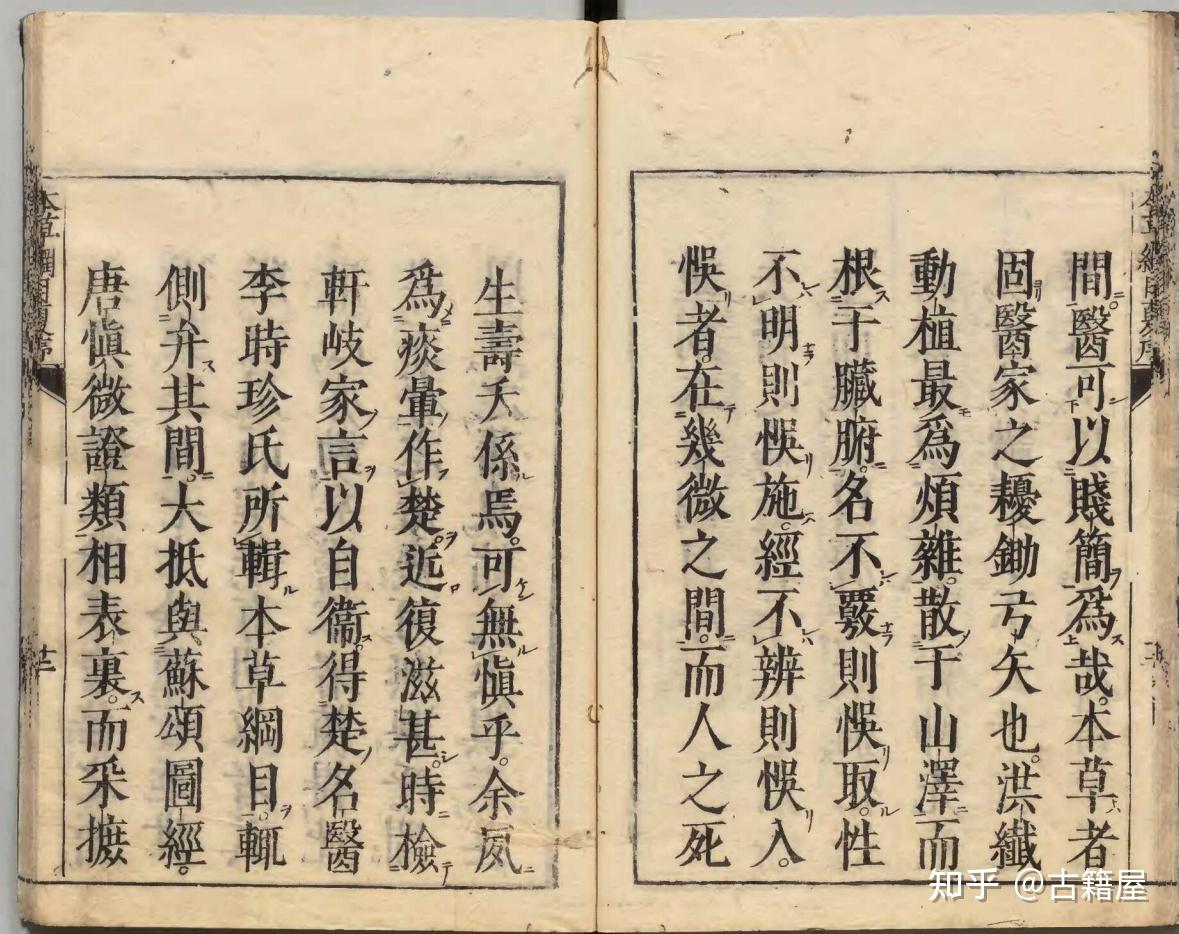 間。醫可以賤簡爲哉。本草者
固醫家之耰鋤弓矢也。洪纖
動植最爲煩雜。散于山澤而
根于臟腑。名不覈則悞取。性
不明則悞施。經不辨則悞入。
悞者。在幾微之間。而人之死
生壽夭係焉。可無愼乎。余夙
爲痰暈作楚。近復滋甚。時檢
軒岐家言以自衞。得楚名醫
李時珍氏所輯本草綱目。輒
側弁其間。大抵與蘇頌圖經。
唐愼微證類相表裏。而采摭
本草綱目夏序
知乎 @古籍屋